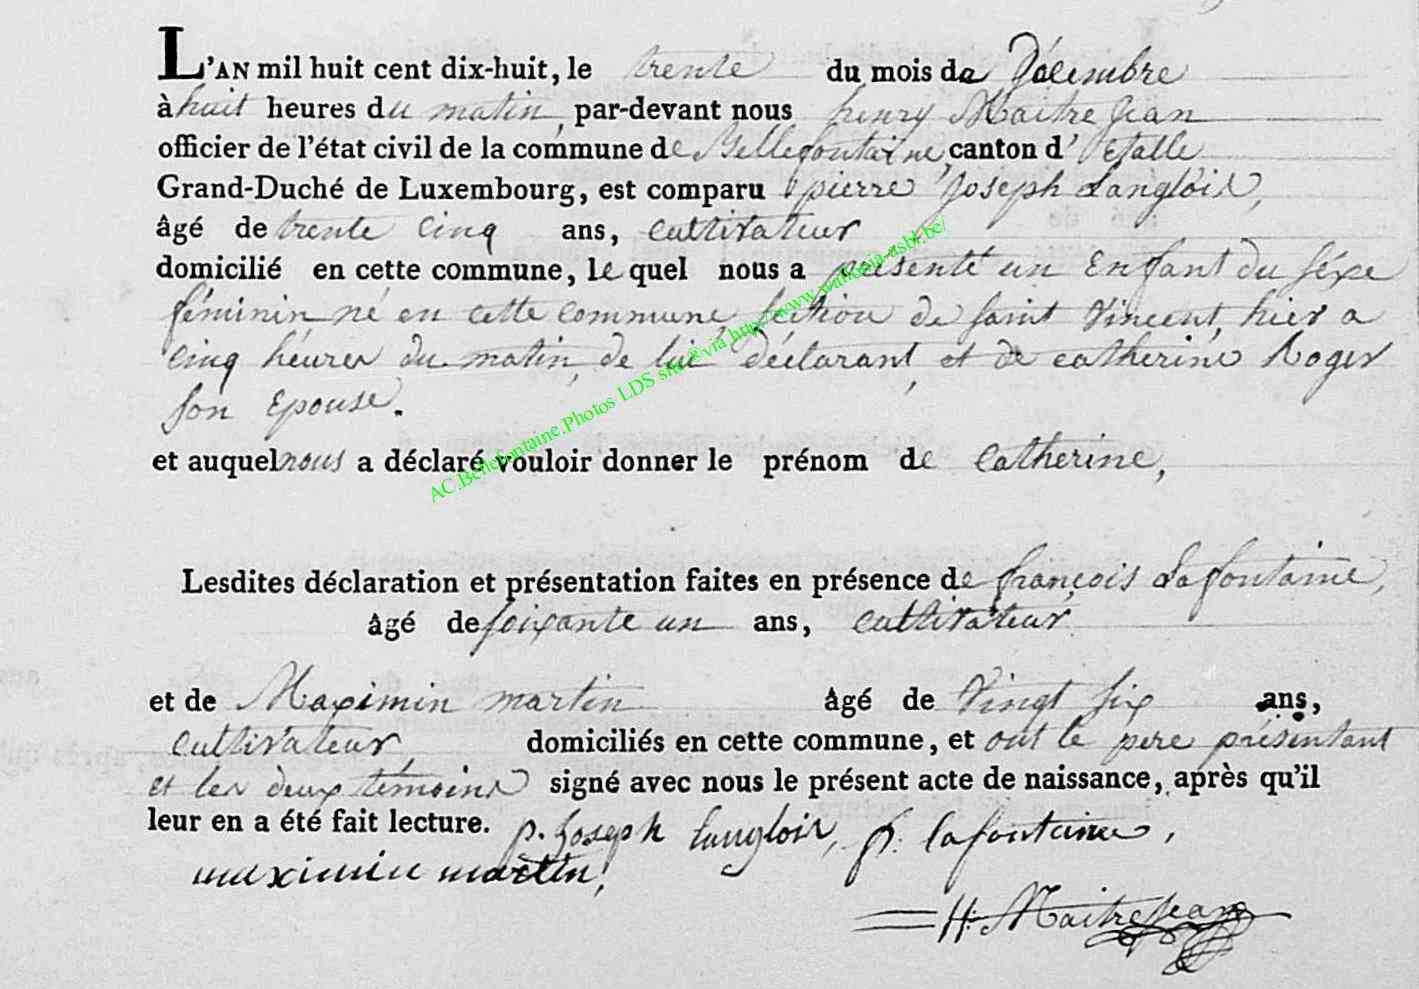 L'AN mil huit cent dix-huit, le trente du mois de Décembre
à huit heures du matin, par-devant nous henry Maitre Jean
officier de l'état civil de la commune de Bellefontaine, canton d'Etalle
Grand-Duché de Luxembourg, est comparu pierre Joseph Langlois,
âgé de trente cinq ans, cultivateur
domicilié en cette commune, lequel nous a présenté un Enfant du séxe
féminin né en cette commune, section de saint Vincent, hier a
cinq heures du matin, de lui déclarant, et de catherine Roger
son Epouse.
et auquel nous a déclaré vouloir donner le prénom de Catherine,
Lesdites déclaration et présentation faites en présence de françois Lafontaine,
âgé de soixante un ans, cultivateur
et de Maximin martin âgé de Vingt six ans,
cultivateur, domiciliés en cette commune, et ont le pere présentant
et les deux témoins signé avec nous le présent acte de naissance, après qu'il
leur en a été fait lecture. p. Joseph Langlois, f. lafontaine,
maximin martin,
H. MaitreJean
AC.Bellefontaine.Photos LDS site via http://www.wallonia-asbl.be/